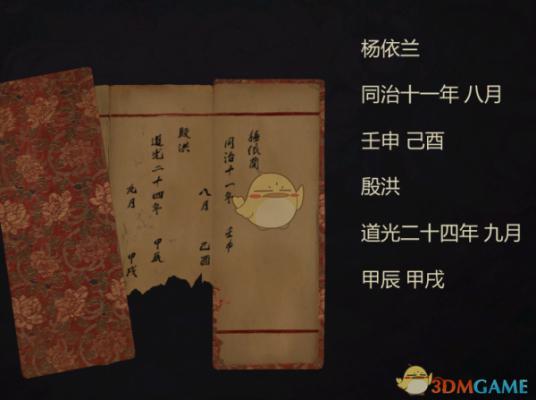 杨依兰
同治十一年 八月
壬申 己酉
殷洪
道光二十四年 九月
甲辰 甲戌
同治十一年
八月
壬申
己酉
殷洪
道光二十四年
九月
甲辰
甲戌
3DMGAME